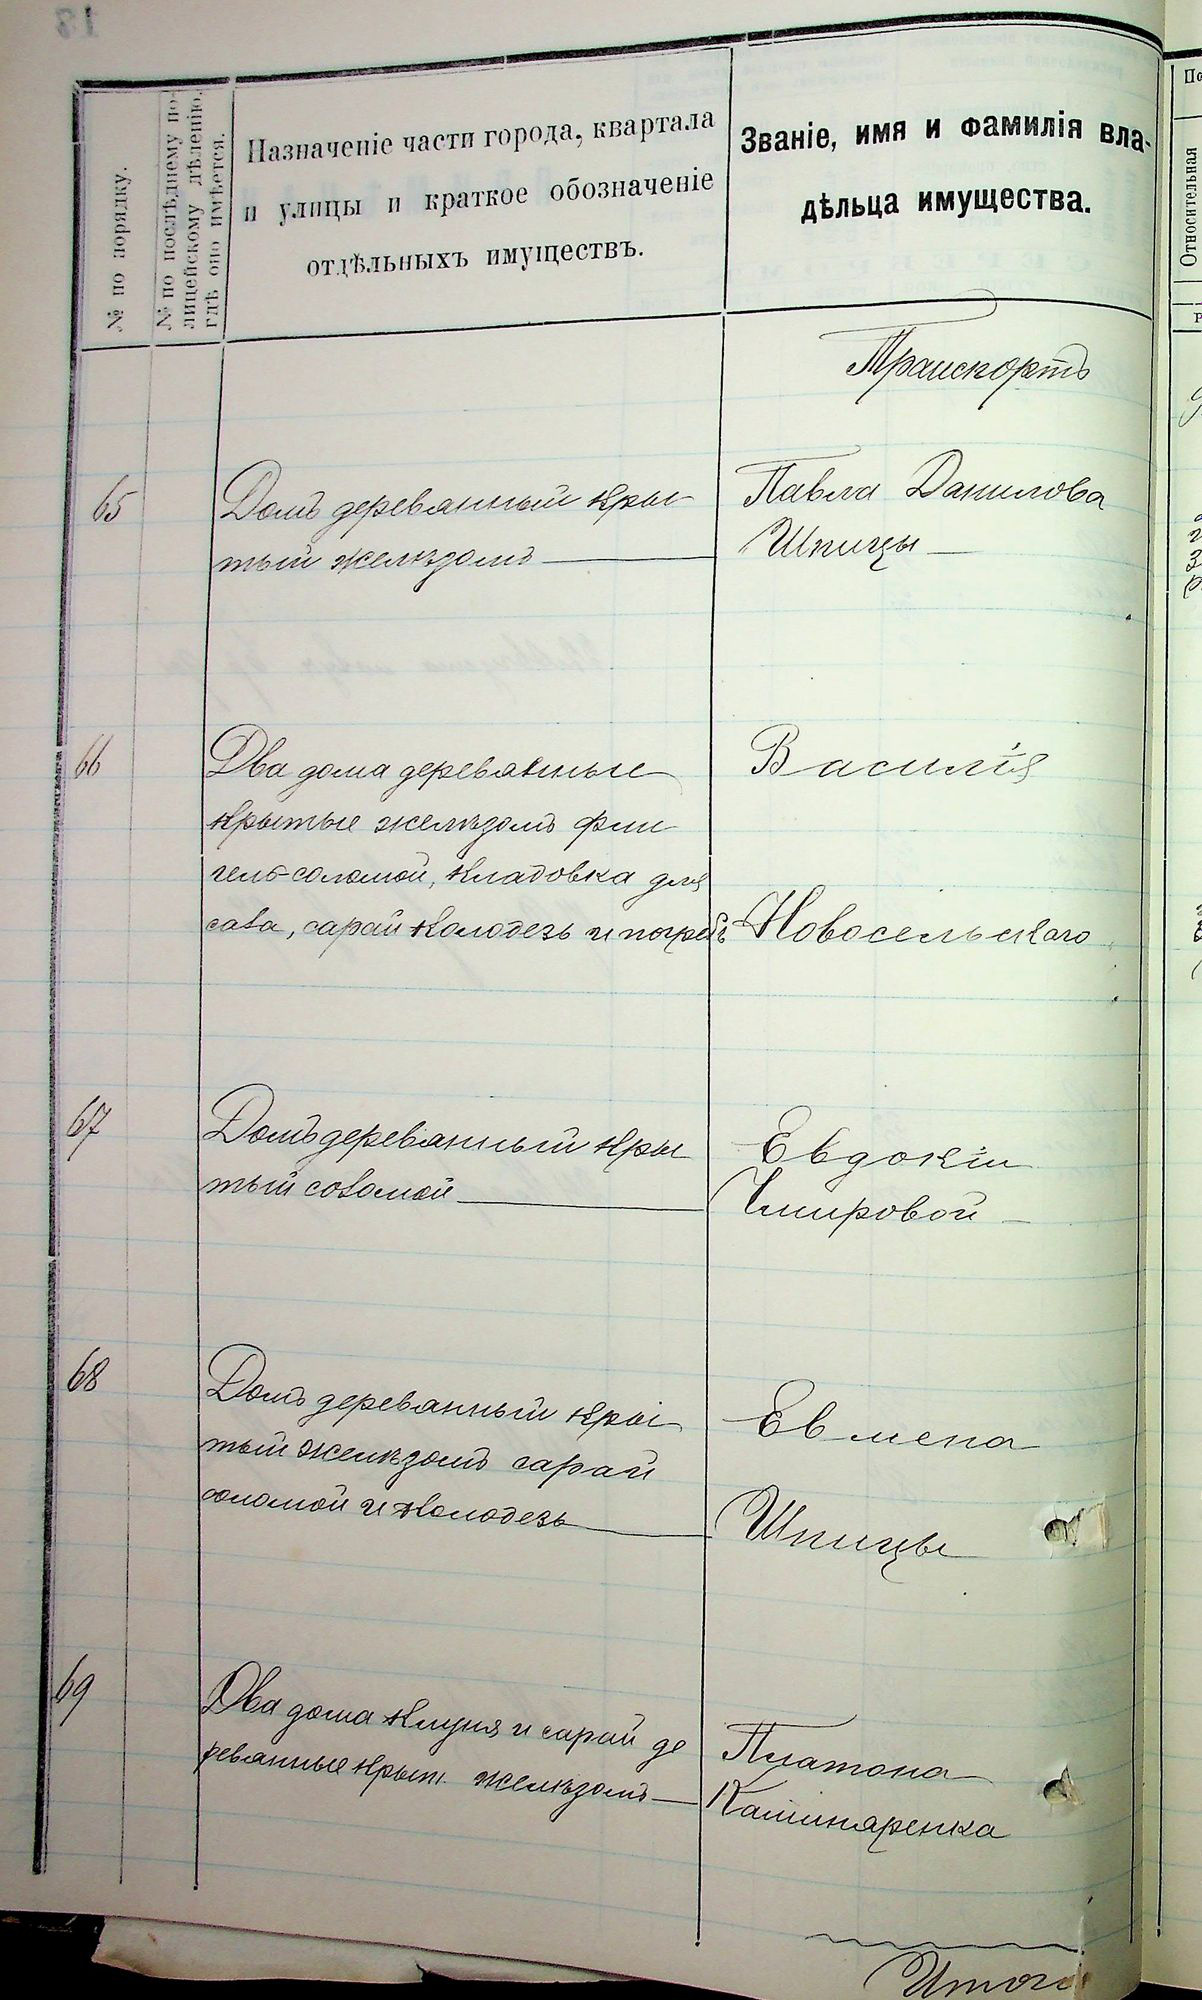 № по порядку.
№ по послѣднему по-
лицейскому дѣленію,
гдѣ оно имѣется.
Назначеніе части города, квартала
и улицы и краткое обозначеніе
отдѣльныхъ имуществъ.
Званіе, имя и фамилія вла-
дѣльца имущества.
Относительная
Транспортъ
65
Домъ деревянный кры-
тый желѣзомъ
Павла Данилова
Шпицы
66
Два дома деревянные
крытые желѣзомъ фли
гель соломой, кладовка для
сава, сарай колодезь и погребъ
Василія
Новосельскаго
67
Домъ деревянный кры
тый соломой
Евдокіи
Чмировой
68
Домъ деревянный кры
тый желѣзомъ сарай
соломой и колодезь
Евмена
Шпицы
69
Два дома клуня и сарай де
ревянные крыт. желѣзомъ
Платона
Кашнаренка
Итого